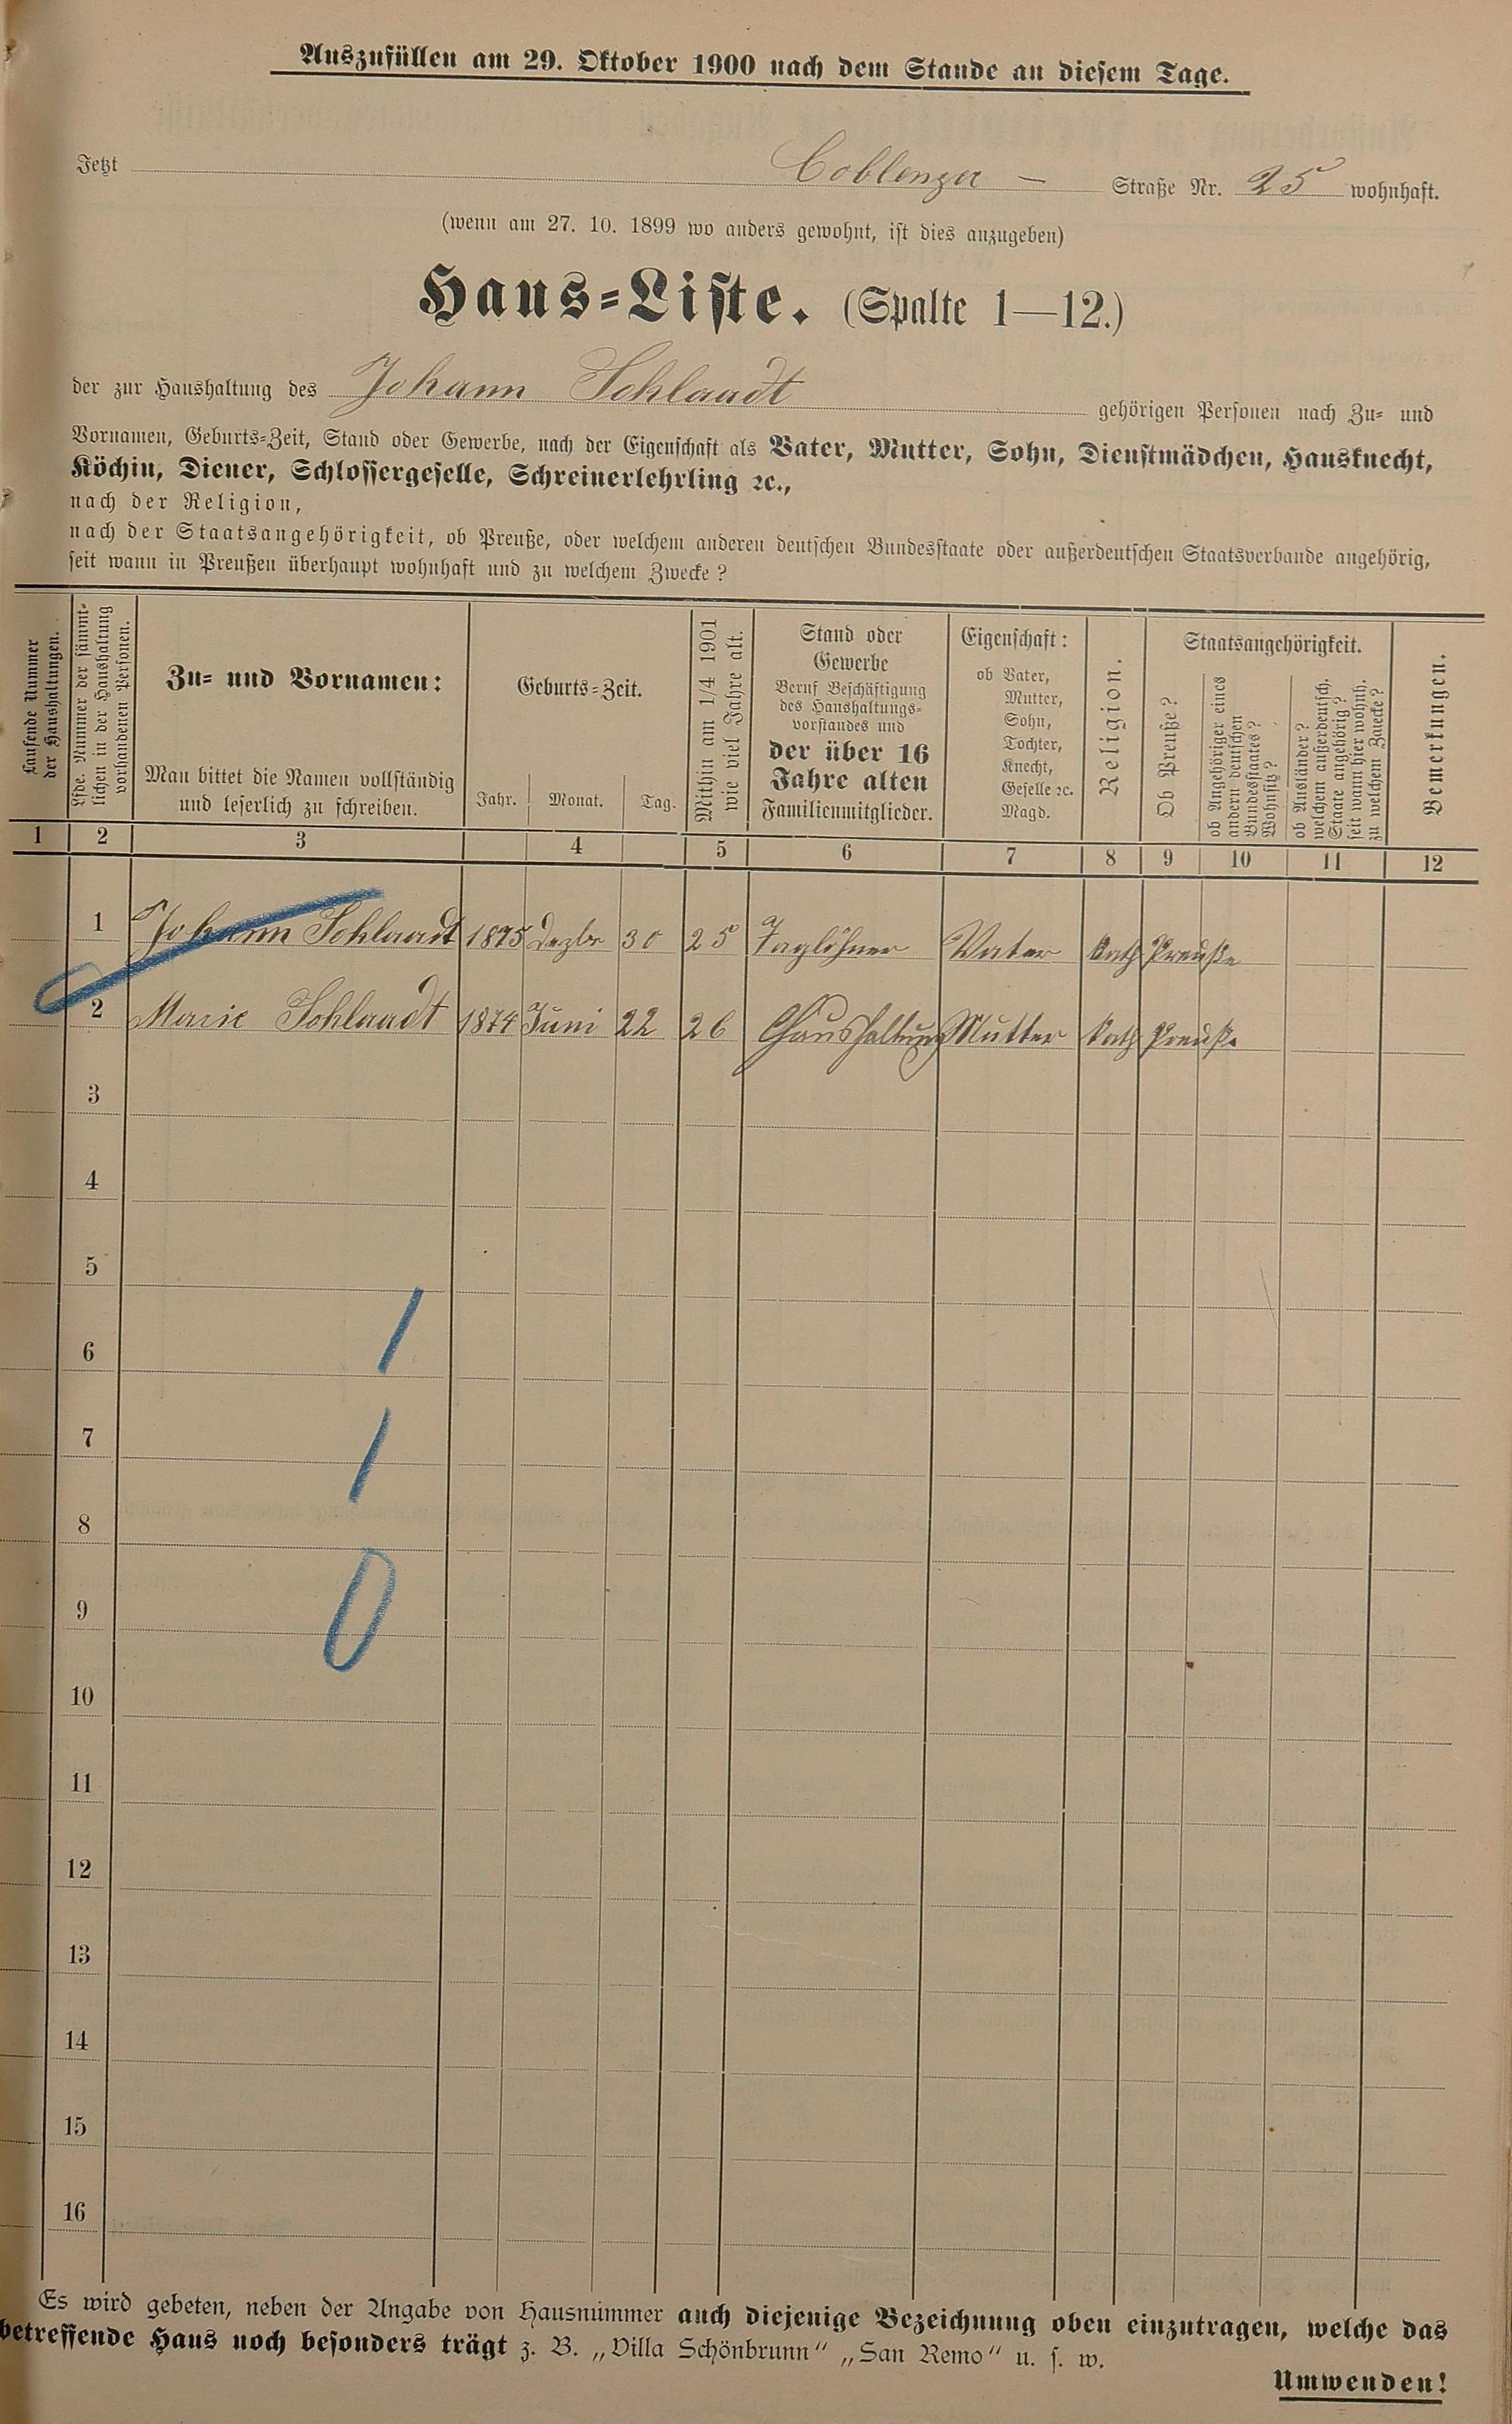 Auszufüllen am 29. Oktober 1900 nach dem Stande an diesem Tage.
Jetzt Coblenzer — Straße Nr. 25 wohnhaft.
(wenn am 27. 10. 1899 wo anders gewohnt, ist dies anzugeben)
Haus-Liste. (Spalte 1—12.)
der zur Haushaltung des Johann Schlaadt gehörigen Personen nach Zu- und
Vornamen, Geburts-Zeit, Stand oder Gewerbe, nach der Eigenschaft als Vater, Mutter, Sohn, Dienstmädchen, Hausknecht,
Köchin, Diener, Schlossergeselle, Schreinerlehrling ꝛc.,
nach der Religion,
nach der Staatsangehörigkeit, ob Preuße, oder welchem anderen deutschen Bundesstaate oder außerdeutschen Staatsverbande angehörig,
seit wann in Preußen überhaupt wohnhaft und zu welchem Zwecke?
Laufende Nummer
der Haushaltungen.
Lfde. Nummer der sämmt-
lichen in der Haushaltung
vorhandenen Personen.
Zu- und Vornamen:
Man bittet die Namen vollständig
und leserlich zu schreiben.
Geburts-Zeit.
Jahr. Monat. Tag.
Mithin am 1/4 1901
wie viel Jahre alt.
Stand oder
Gewerbe
Beruf Beschäftigung
des Haushaltungs-
vorstandes und
der über 16
Jahre alten
Familienmitglieder.
Eigenschaft:
ob Vater,
Mutter,
Sohn,
Tochter,
Knecht,
Geselle ꝛc.
Magd.
Religion.
Staatsangehörigkeit.
Ob Preuße?
ob Angehöriger eines
andern deutschen
Bundesstaates?
Wohnsitz?
ob Ausländer?
welchem außerdeutsch.
Staate angehörig?
seit wann hier wohnh.
zu welchem Zwecke?
Bemerkungen.
1 2 3 4 5 6 7 8 9 10 11 12
1 Johann Schlaadt 1875 Dezbr 30 25 Taglöhner Vater Kath Preuße
2 Marie Schlaadt 1874 Juni 22 26 Haushaltung Mutter Kath Preuße
3
4
5
6
7
8
9
10
11
12
13
14
15
16
1
1
0
Es wird gebeten, neben der Angabe von Hausnummer auch diejenige Bezeichnung oben einzutragen, welche das
betreffende Haus noch besonders trägt z. B. „Villa Schönbrunn“ „San Remo“ u. s. w.
Umwenden!